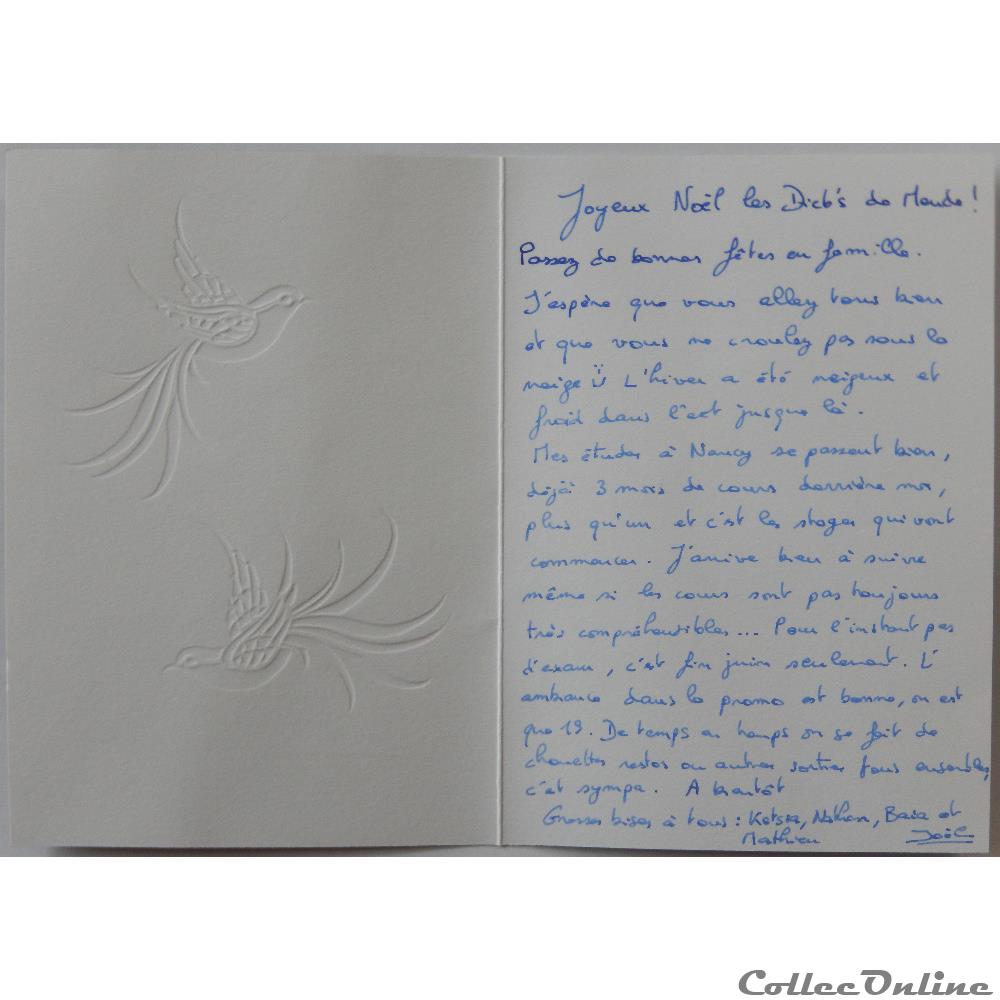 Joyeux Noël les Dick's de Mende !
Passez de bonnes fêtes en famille.
J'espère que vous allez tous bien
et que vous ne croulez pas sous la
neige Ü L'hiver a été neigeux et
froid dans l'est jusque là.
Mes études à Nancy se passent bien,
déjà 3 mois de cours derrière moi,
plus qu'un et c'est les stages qui vont
commencer. J'arrive bien à suivre
même si les cours sont pas toujours
très compréhensibles... Pour l'instant pas
d'exam, c'est fin juin seulement. L'
ambiance dans la promo est bonne, on est
que 19. De temps en temps on se fait de
chouettes restos ou autres sorties tous ensemble,
c'est sympa. A bientôt
Grosses bises à tous : Ketsia, Nathan, Baia et
Mathieu Joël
CollecOnline